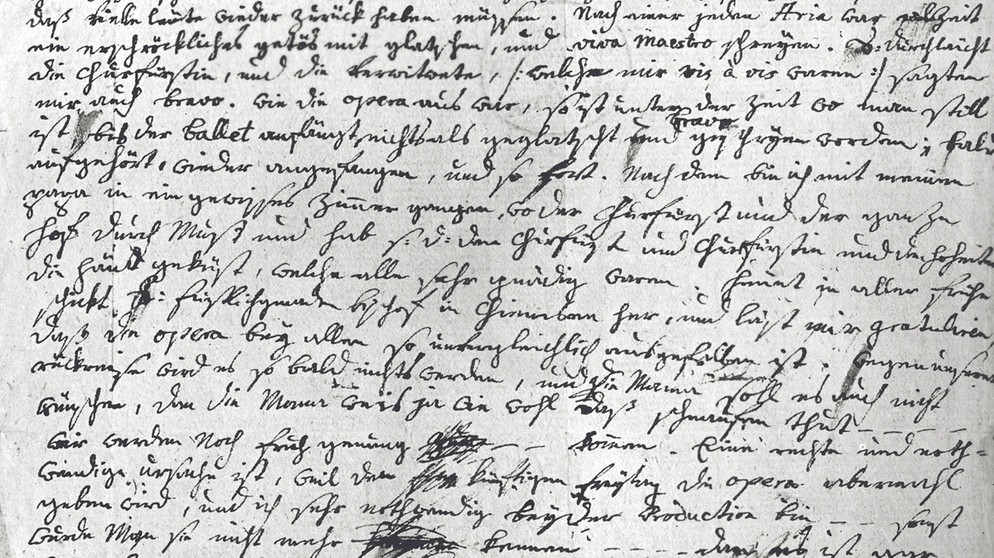 daß viele leüte wieder zurück haben müssen. Nach einer jeden Aria war allzeit
ein erschröckliches getös mit glatschen, und viva Maestro schreyen. S: Durchlaucht
die Churfürstin, und die verwitwete, /: welche mir vis à vis waren :/ sagten
mir auch bravo. wie die opera aus war, so ist unter der zeit wo man still
ist, bis der ballet anfängt, nichts als geglatscht und bravo geschryen worden; bald
aufgehört, wieder angefangen, und so fort. Nach dem bin ich mit meinen
papa in ein gewisses Zimmer gangen, wo der Churfürst und der ganze
Hof durch Muß und hab s: d: den Churfürst und Churfürstin und den hoheiten
die händ geküst, welche alle sehr gnädig waren. heunt in aller frühe
schickt S: Fürstlichgnaden bischof in Chiemsee her, und läst mir gratuliren,
daß die opera bey allen so unvergleichlich ausgefallen ist. wegen unserer
rückreise wird es so bald nichts werden, und die Mama soll es auch nicht
wünschen, den die Mama weis ja wie wohl daß schnaufen thut - - - -
wir werden Noch früh genung - - kommen. Eine rechte und noth=
wendige ursache ist, weil den künftigen freytag die opera abermahl
geben wird, und ich sehr nothwendig bey der Production bin - - sonst
würde Man sie nicht mehr kennen - - - - den es ist gar